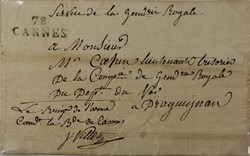 Service de la Gendrie Royale
78
CANNES
a Monsieur
Mr lieutenant tresorier
De la Compie de Gendrie Royale
Du Dept du Var
a Draguignan
Le
Comdt la de Cannes